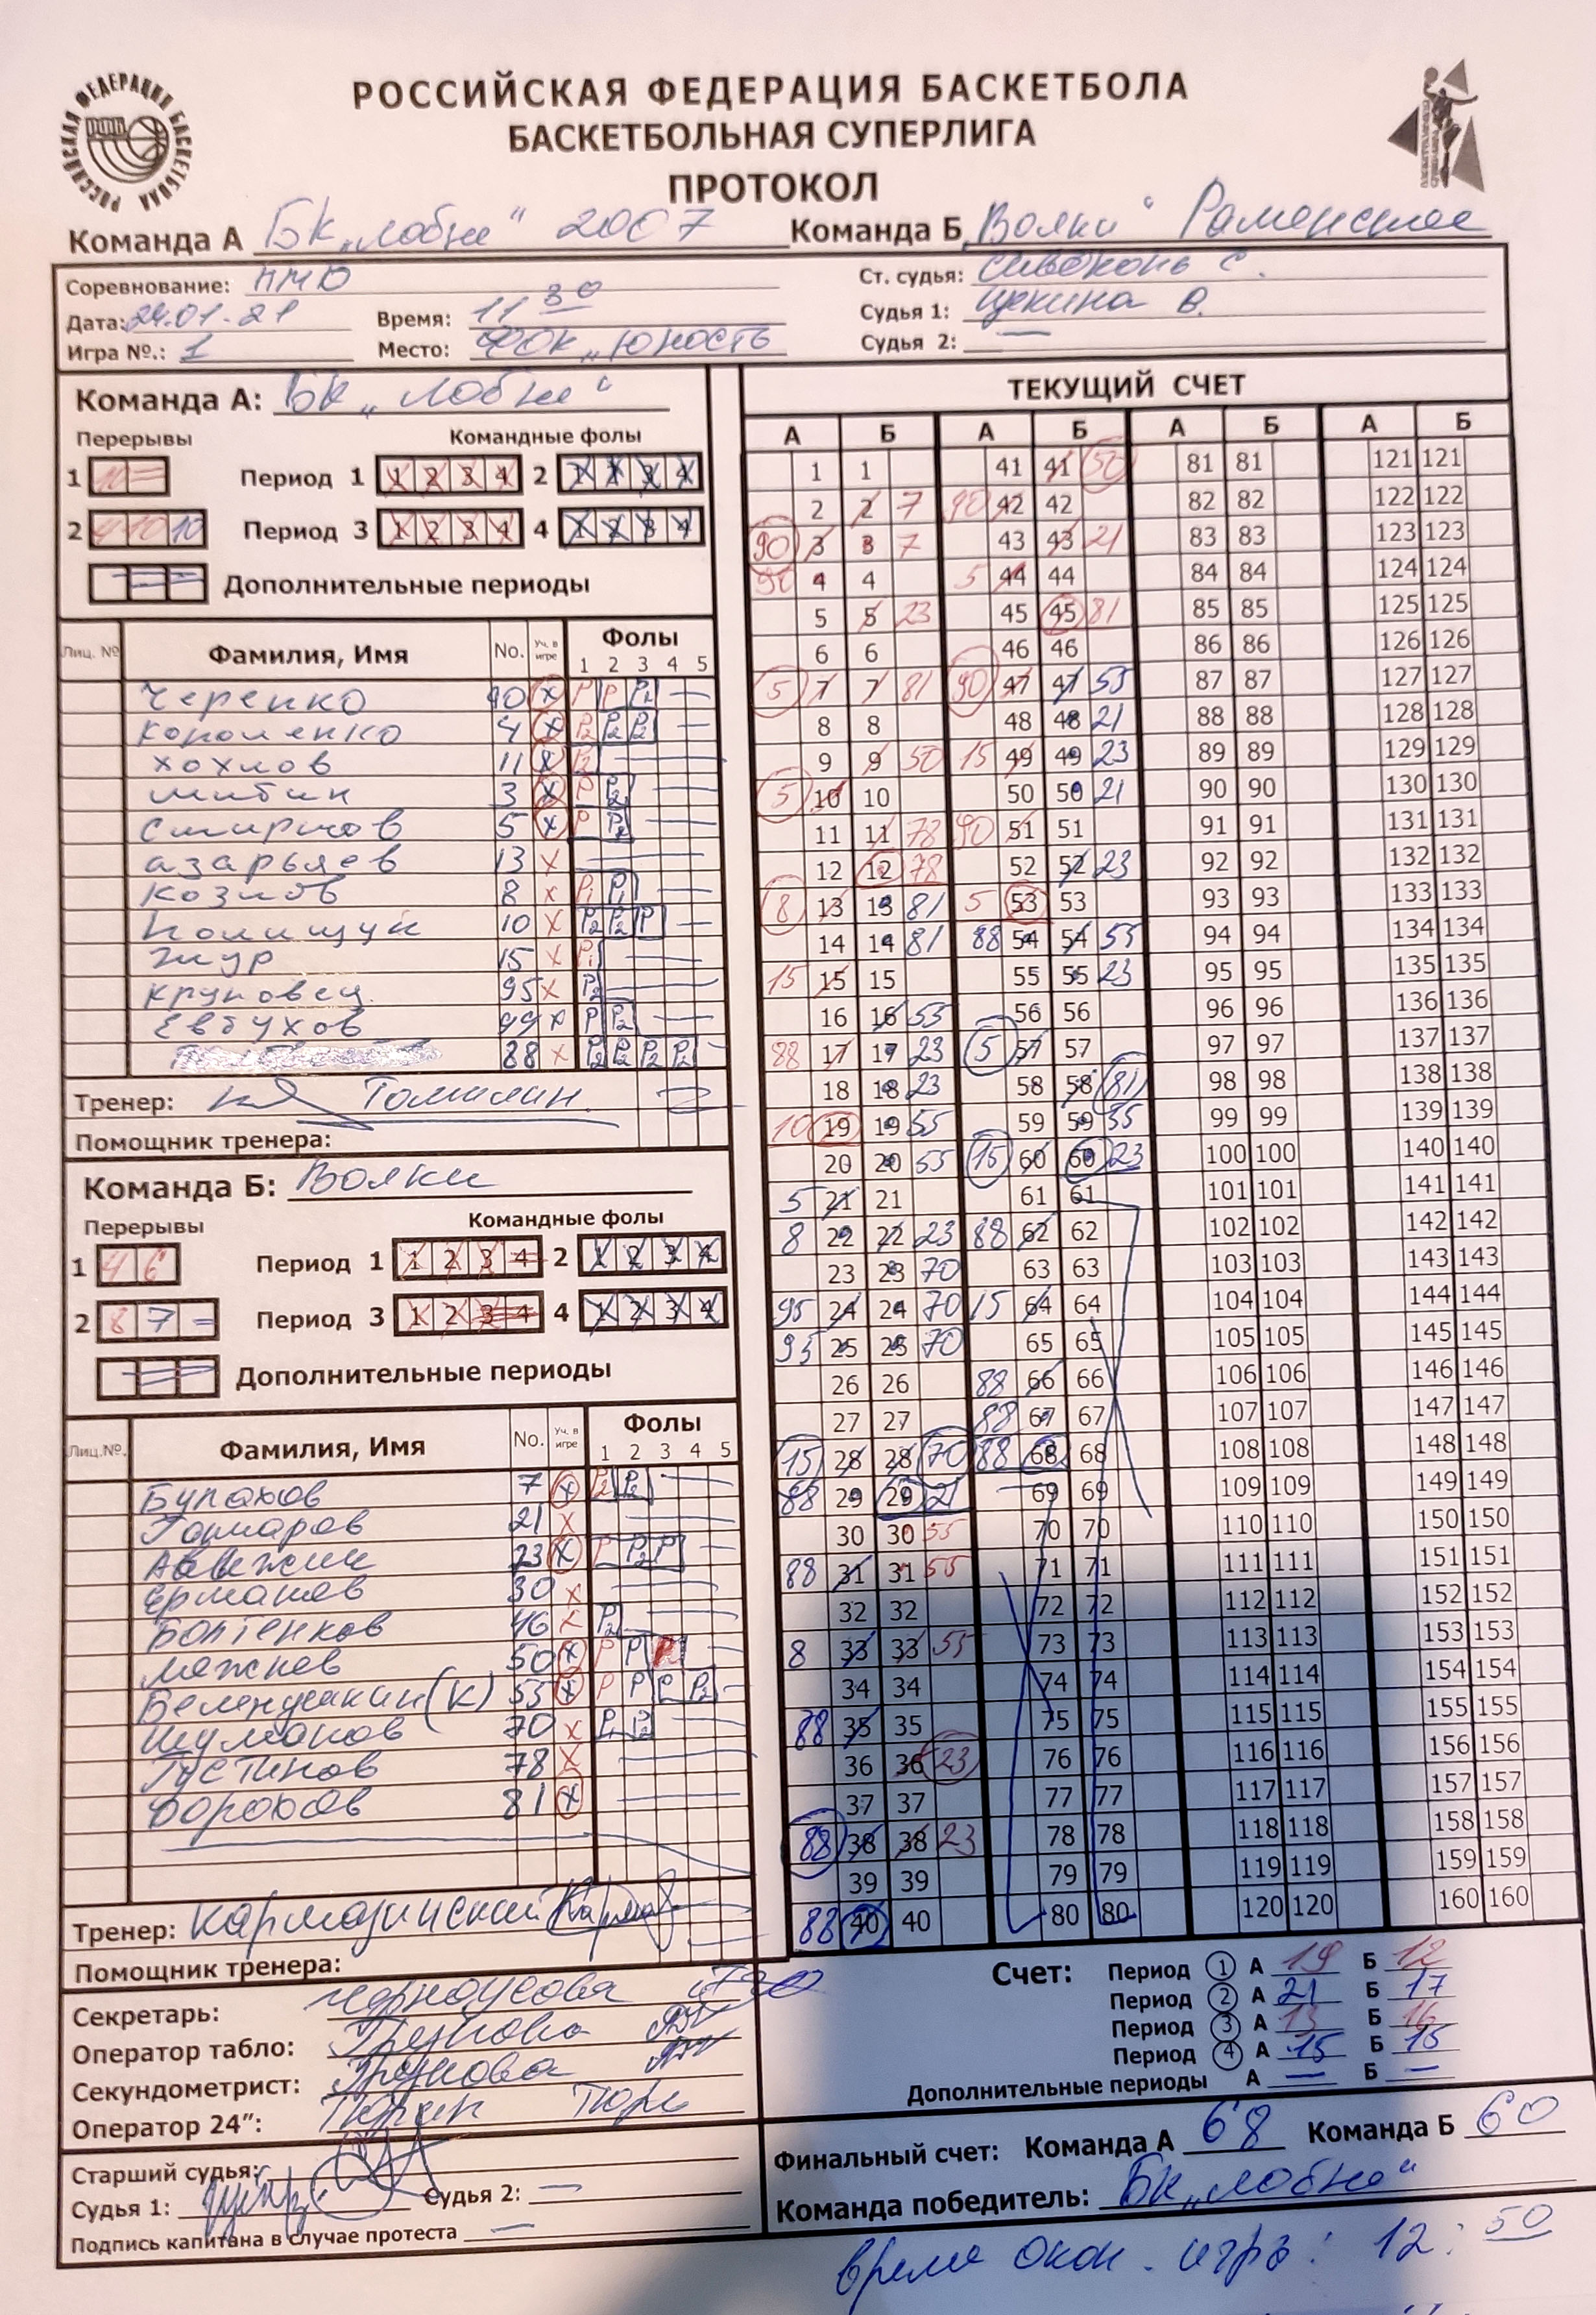 РОССИЙСКАЯ ФЕДЕРАЦИЯ БАСКЕТБОЛА
БАСКЕТБОЛЬНАЯ СУПЕРЛИГА
ПРОТОКОЛ
Команда А БК „Лобня" 2007 Команда Б „Волки" Раменское
Соревнование: ПМО Ст. судья:
Дата: 24.01.21 Время: 11 30 Судья 1: В.
Игра №.: 1 Место: ФОК „Юность Судья 2: —
Команда А: БК „Лобня"
Перерывы Командные фолы
1 10 = Период 1 1 2 3 4 2 1 2 3 4
2 4 10 10 Период 3 1 2 3 4 4 1 2 3 4
Дополнительные периоды
Лиц. № Фамилия, Имя No. Уч. в игре Фолы 1 2 3 4 5
Черенко 90 x P P P2
4 x P2 P2 P2
Хохлов 11 x P2
3 x P P2
Смирнов 5 x P P2
Азарьяев 13 x
Козлов 8 x P1 P1
Полищук 10 x P2 P2 P
Жур 15 x P1
Круповец 95 x P2
Евтухов 99 x P P2
88 x P2 P2 P2 P2
Тренер: Томилин
Помощник тренера:
Команда Б: Волки
Перерывы Командные фолы
1 4 6 Период 1 1 2 3 4 2 1 2 3 4
2 8 7 = Период 3 1 2 3 4 4 1 2 3 4
Дополнительные периоды
Лиц.№. Фамилия, Имя No. Уч. в игре Фолы 1 2 3 4 5
7 x P2 P2
21 x
23 x P P2 P
Ермаков 30 x
Болтенков 46 x P2
50 x P P
(К) 55 x P P P P2
Шулманов 70 x P1 P2
Густинов 78 x
81 x
Тренер: Кармазинский
Помощник тренера:
Секретарь: Черноусова
Оператор табло:
Секундометрист:
Оператор 24": Тюрин Тюри
Старший судья:
Судья 1: Судья 2: —
Подпись капитана в случае протеста —
ТЕКУЩИЙ СЧЕТ
А Б А Б А Б А Б
1 1 41 41 50 81 81 121 121
2 2 7 90 42 42 82 82 122 122
90 3 3 7 43 43 21 83 83 123 123
90 4 4 5 44 44 84 84 124 124
5 5 23 45 45 81 85 85 125 125
6 6 46 46 86 86 126 126
5 7 7 81 90 47 47 55 87 87 127 127
8 8 48 48 21 88 88 128 128
9 9 50 15 49 49 23 89 89 129 129
5 10 10 50 50 21 90 90 130 130
11 11 78 90 51 51 91 91 131 131
12 12 78 52 52 23 92 92 132 132
8 13 13 81 5 53 53 93 93 133 133
14 14 81 88 54 54 55 94 94 134 134
15 15 15 55 55 23 95 95 135 135
16 16 55 56 56 96 96 136 136
88 17 17 23 5 57 57 97 97 137 137
18 18 23 58 58 81 98 98 138 138
10 19 19 55 59 59 55 99 99 139 139
20 20 55 15 60 60 23 100 100 140 140
5 21 21 61 61 101 101 141 141
8 22 22 23 88 62 62 102 102 142 142
23 23 70 63 63 103 103 143 143
95 24 24 70 15 64 64 104 104 144 144
95 25 25 70 65 65 105 105 145 145
26 26 88 66 66 106 106 146 146
27 27 88 67 67 107 107 147 147
15 28 28 70 88 68 68 108 108 148 148
88 29 29 21 69 69 109 109 149 149
30 30 55 70 70 110 110 150 150
88 31 31 55 71 71 111 111 151 151
32 32 72 72 112 112 152 152
8 33 33 55 73 73 113 113 153 153
34 34 74 74 114 114 154 154
88 35 35 75 75 115 115 155 155
36 36 23 76 76 116 116 156 156
37 37 77 77 117 117 157 157
88 38 38 23 78 78 118 118 158 158
39 39 79 79 119 119 159 159
88 40 40 80 80 120 120 160 160
Счет: Период 1 А 19 Б 12
Период 2 А 21 Б 17
Период 3 А 13 Б 16
Период 4 А 15 Б 15
Дополнительные периоды А — Б —
Финальный счет: Команда А 68 Команда Б 60
Команда победитель: БК „Лобня"
Время окон. игры: 12:50